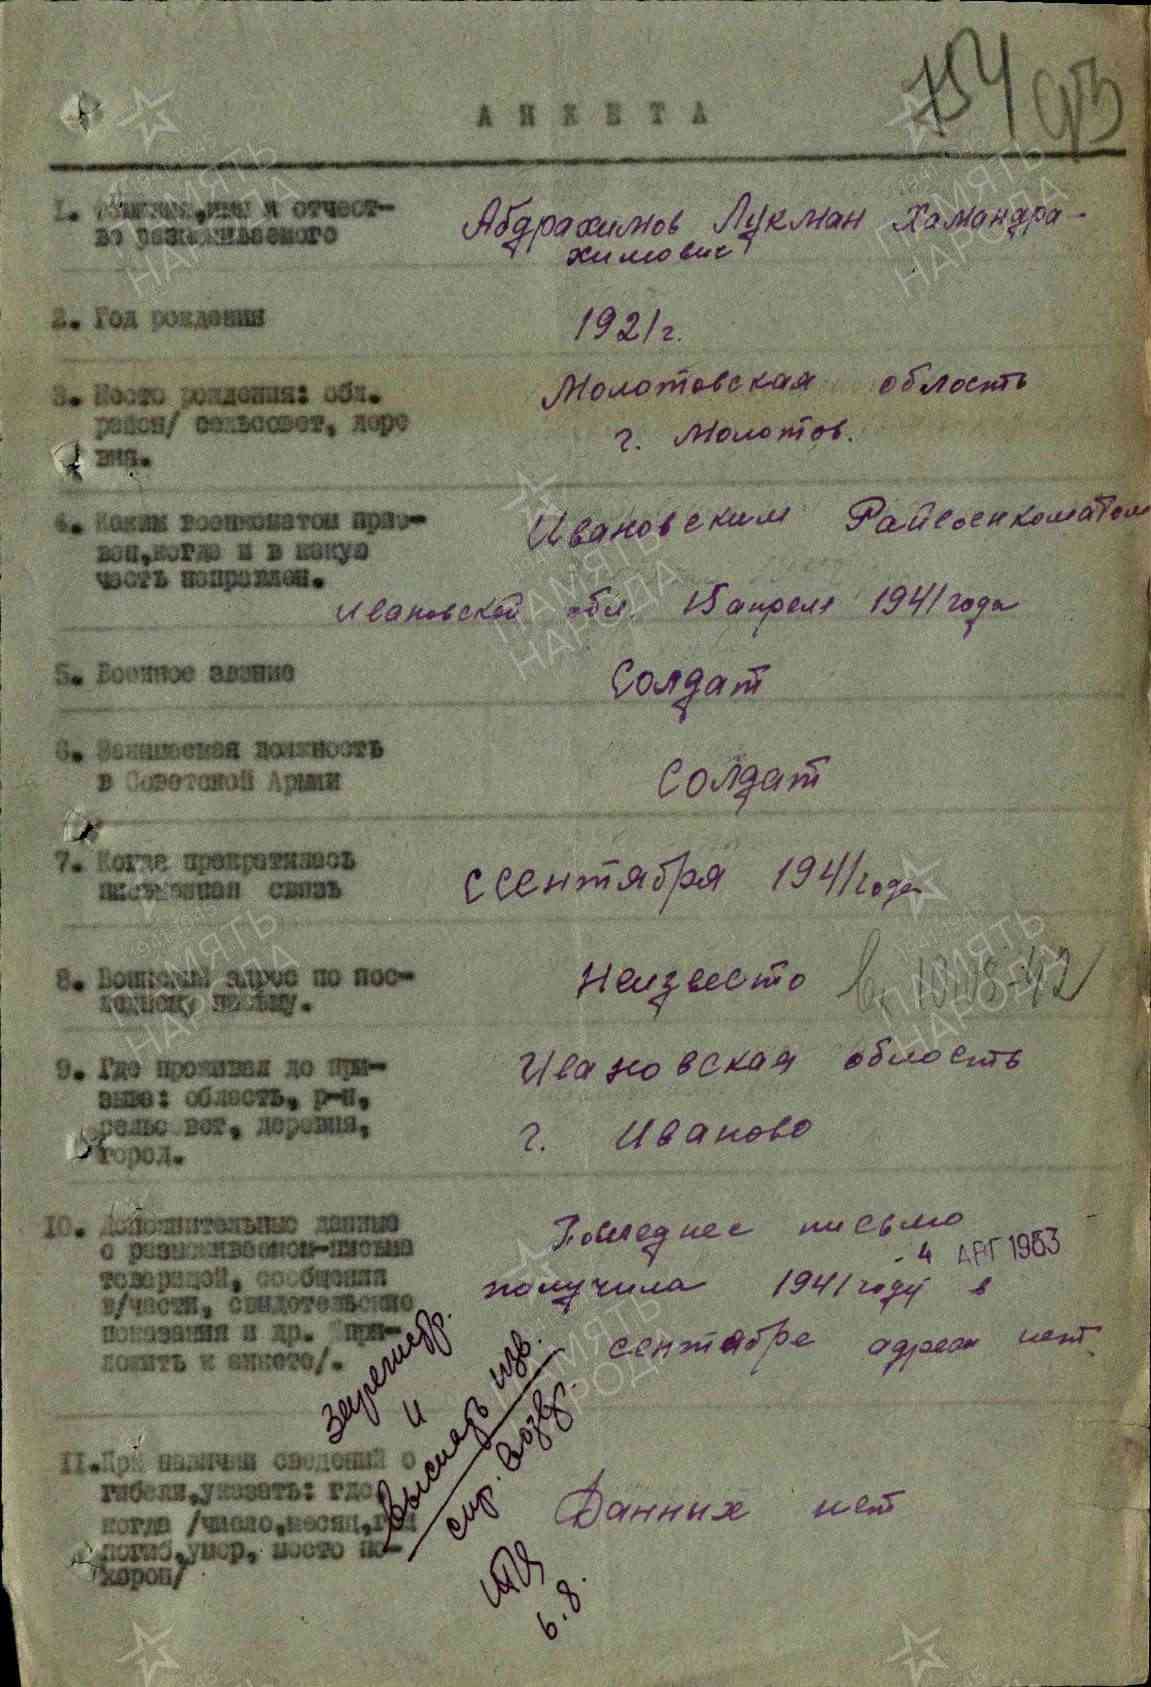 754
АНКЕТА
1. Фамилия, имя и отчест-
во разыскиваемого
Абдрахимов Лукман Хамандра-
химович
2. Год рождения
1921 г.
3. Место рождения: обл.
район/ сельсовет, дере
вня.
Молотовская область
г. Молотов.
4. Каким военкоматом приз-
ван, когда и в какую
часть направлен.
Ивановским Райвоенкоматом
Ивановской обл. 15 апреля 1941 года
5. Военное звание
Солдат
6. Занимаемая должность
в Советской Армии
Солдат
7. Когда прекратилась
письменная связь
с сентября 1941 года
8. Воинский адрес по пос-
леднему письму.
Неизвесто
9. Где проживал до приз-
ыва: область, р-н,
сельсовет, деревня,
город.
Ивановская область
г. Иваново
10. Дополнительные данные
о разыскиваемом-письма
товарищей, сообщения
в/части, свидетельские
показания и др. /при-
ложить к анкете/.
Последнее письмо
- 4 АВГ 1953
получила 1941 году в
сентябре адреса нет
Зарегистр.
и
Выслать изв.
спр. возвр.
6.8.
11. При наличии сведений о
гибели, указать: где,
когда /число, месяц, год
погиб, умер, место по-
хорон/
Данных нет
ПАМЯТЬ
НАРОДА